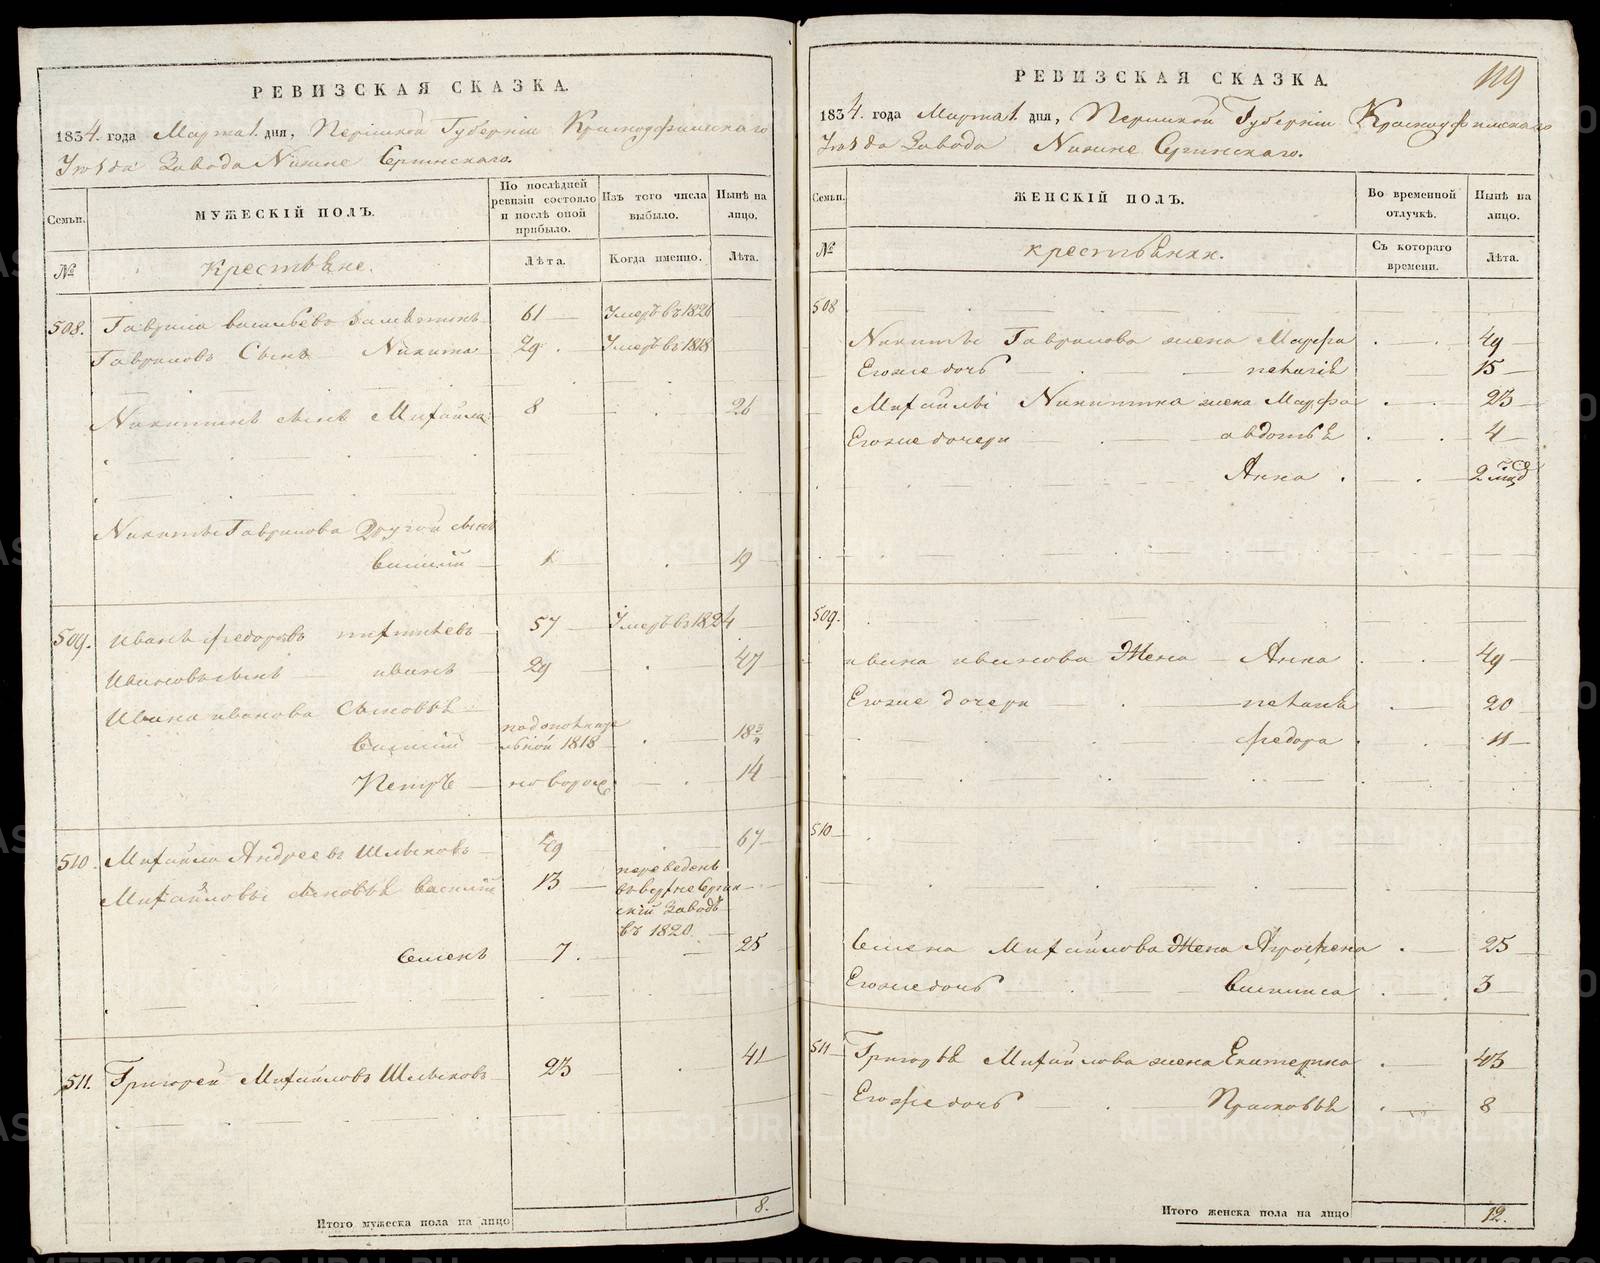 РЕВИЗСКАЯ СКАЗКА.
1834. года Марта 1. дня, Пермской Губернiи Красноуфимскаго
Уѣзда Завода Нижне Сергинскаго.
Семьи.
МУЖЕСКIЙ ПОЛЪ.
По послѣдней ревизiи состояло и послѣ оной прибыло.
Изъ того числа выбыло.
Нынѣ на лицо.
№
Крестьѣне.
Лѣта.
Когда именно.
Лѣта.
508. Гаврила васильевъ 61 Умеръ въ 1826
Гавриловъ Сынъ Никита 29. Умеръ въ 1818
Никитинъ сынъ Михайла 8 26
Никиты Гаврилова Другой сынъ
Василiй 1 19
509. Иванъ федоровъ 57 Умеръ въ 1824
Ивановъ сынъ иванъ 29 47
Ивана иванова Сыновьѣ
Василiй 1818 18
Петръ новорож 14
510. Михайла Андреевъ Шлыковъ 49 67
Михайловы сыновьѣ Василiй 13 переведенъ
въ верхне Сергин
скiй Заводъ
въ 1820.
Семенъ 7. 25
511. Григорей Михайловъ Шлыковъ 23 41
Итого мужеска пола на лицо 8.
119
РЕВИЗСКАЯ СКАЗКА.
1834. года Марта 1. дня, Пермской Губернiи Красноуфимскаго
Уѣзда Завода Нижне Сергинскаго.
Семьи.
ЖЕНСКIЙ ПОЛЪ.
Во временной отлучкѣ.
Нынѣ на лицо.
№
крестьѣнки.
Съ котораго времени.
Лѣта.
508
Никиты Гаврилова жена Марфа 49
Егоже дочь пелагiѣ 15
Михайлы Никитина жена Марфа 23
Егоже дочери авдотьѣ 4
Анна 2
509.
ивана иванова Жена Анна 49
Егоже дочери 20
федора 11
510
Семена Михайлова Жена 25
Егоже дочь Василиса 3
511 Григорьѣ Михайлова жена Екатерина 43
Егоже дочь Прасковьѣ 8
Итого женска пола на лицо 12.
METRIKI.GASO-URAL.RU